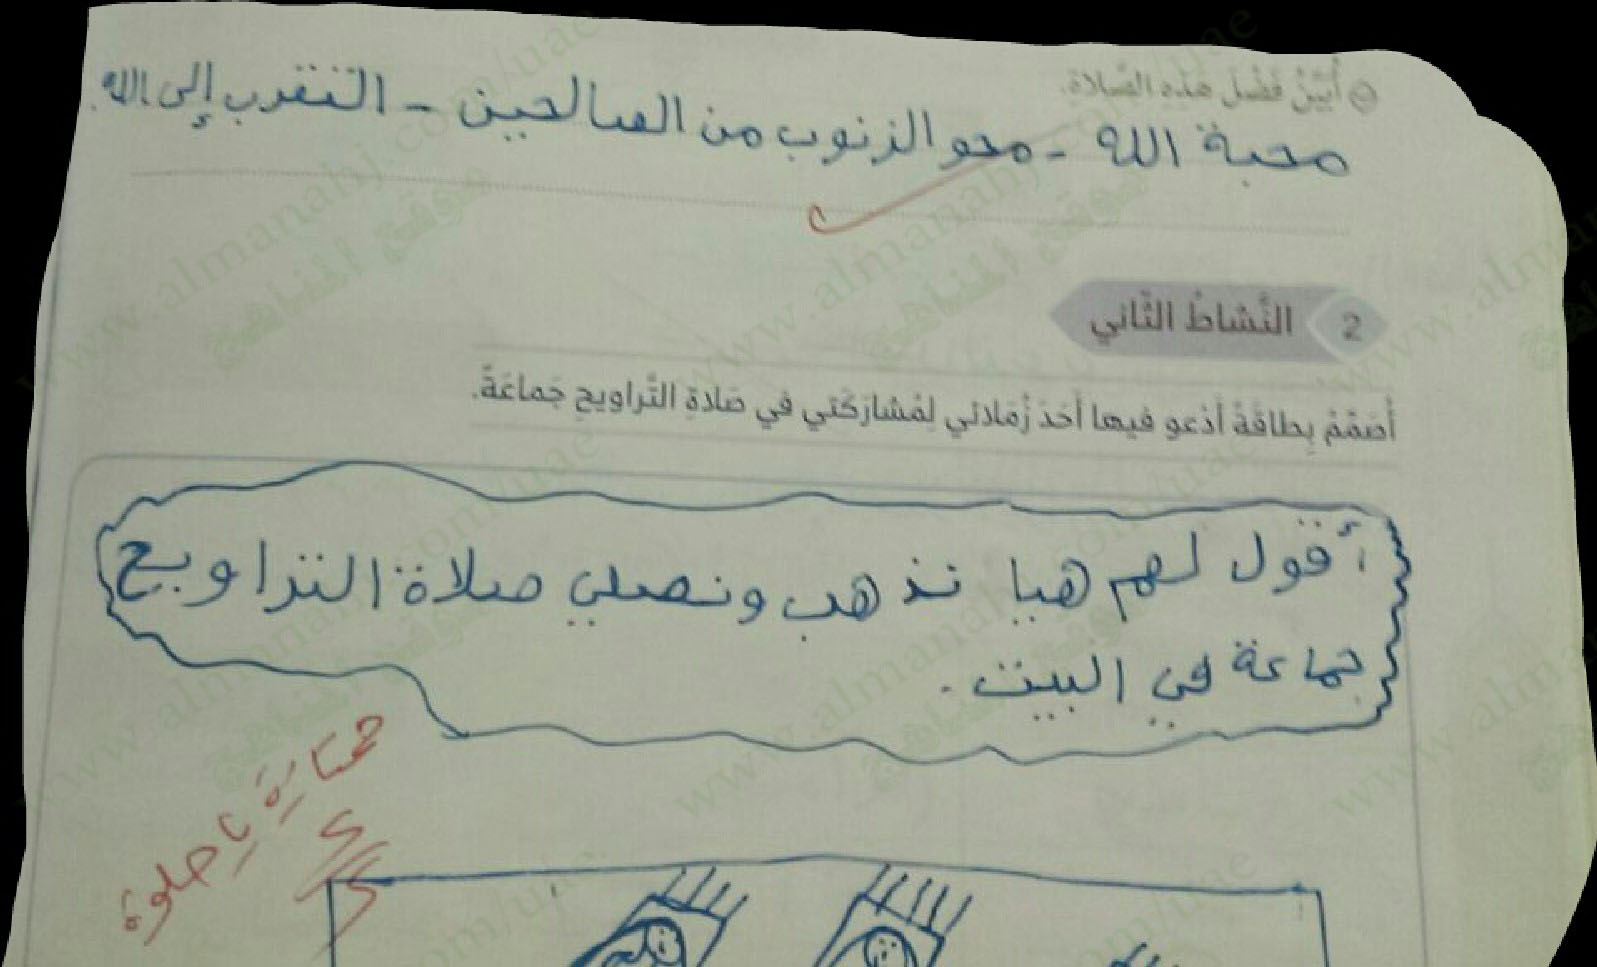 أُبَيِّنُ فَضْلَ هَذِهِ الصَّلاةِ.
محبة الله - محو الزنوب من الصالحين - التقرب إلى الله.
2 النَّشاطُ الثّاني
أُصَمِّمُ بِطاقَةً أَدْعو فيها أَحَدَ زُمَلائي لِمُشارَكَتي في صَلاةِ التَّراويحِ جَماعَةً.
أقول لهم هيا نذهب ونصلي صلاة التراويح
جماعة في البيت.
ممتازة يا حلوة
www.almanahj.com/uae
موقع المناهج